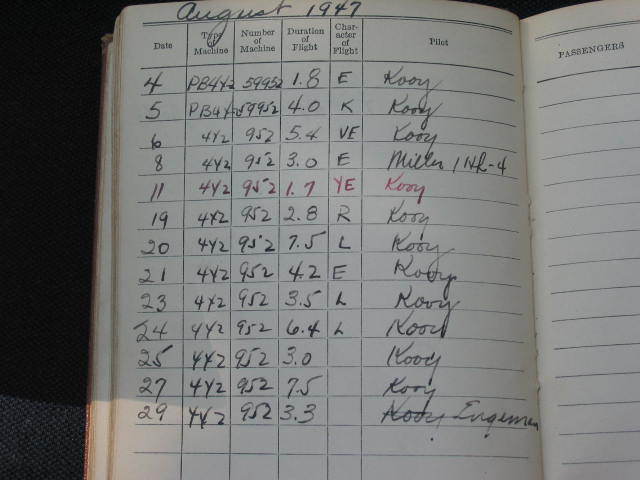 August 1947
Date Type of Machine Number of Machine Duration of Flight Char- acter of Flight Pilot PASSENGERS
4 PB4Y2 59952 1.8 E Kooy
5 PB4Y2 59952 4.0 K Kooy
6 4Y2 952 5.4 VE Kooy
8 4Y2 952 3.0 E Miller 1 Hr-4
11 4Y2 952 1.7 YE Kooy
19 4Y2 952 2.8 R Kooy
20 4Y2 952 7.5 L Kooy
21 4Y2 952 4.2 E Kooy
23 4Y2 952 3.5 L Kooy
24 4Y2 952 6.4 L Kooy
25 4Y2 952 3.0 Kooy
27 4Y2 952 7.5 Kooy
29 4Y2 952 3.3 Kooy Engeman